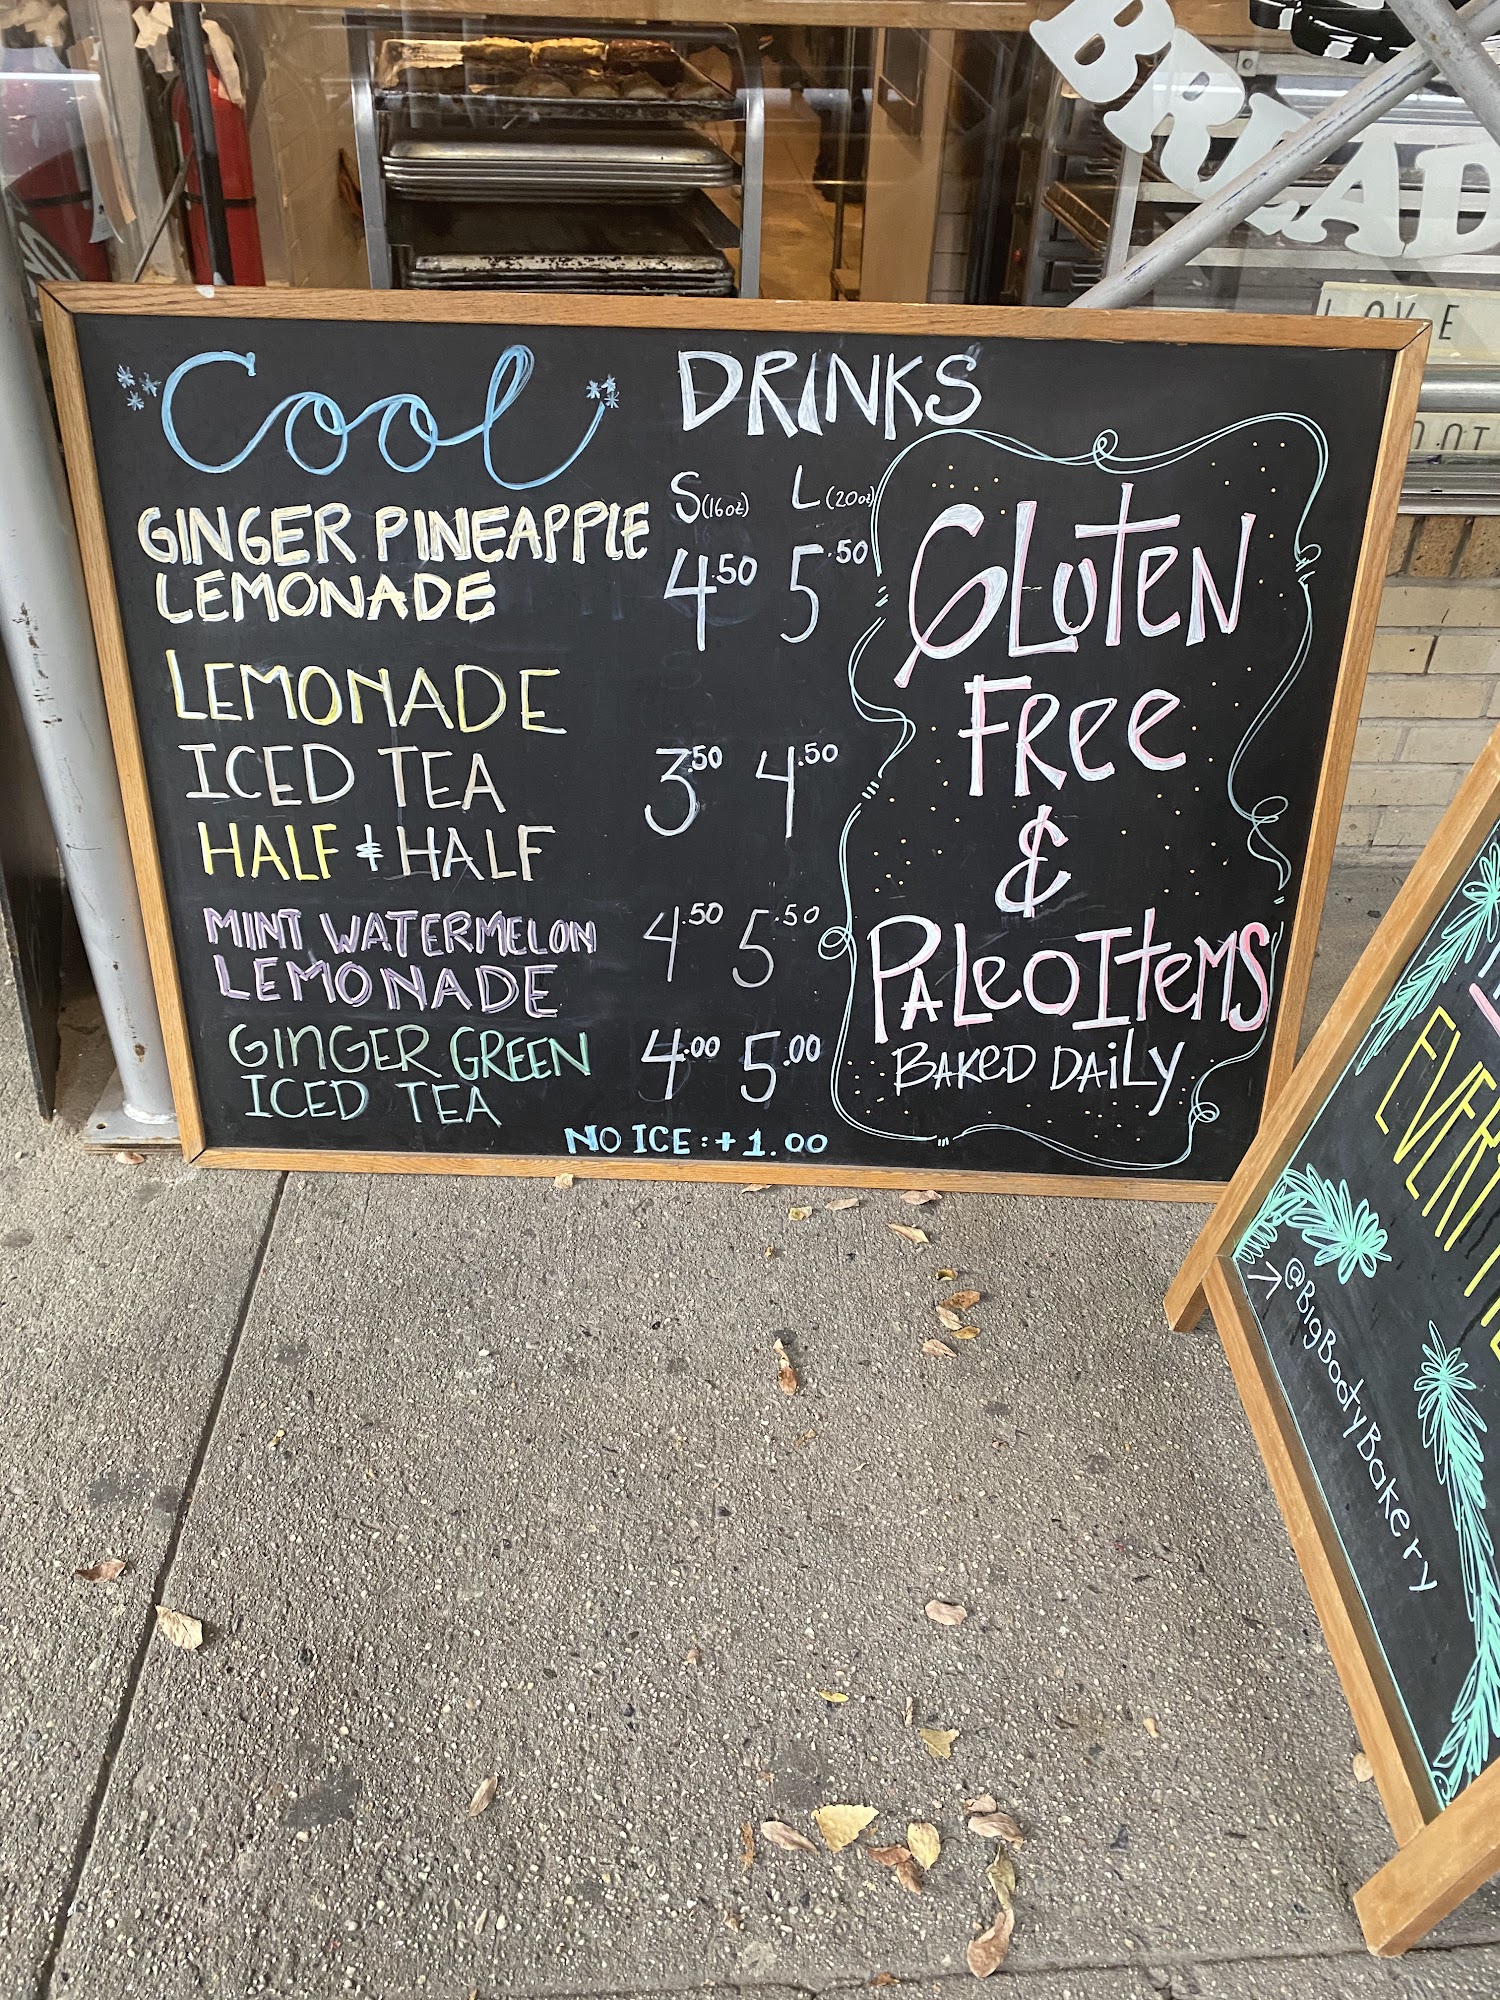 BREAD
LOVE
Cool DRINKS
S (16oz) L (20oz)
GINGER PINEAPPLE
LEMONADE
4.50 5.50
LEMONADE
ICED TEA
3.50 4.50
HALF & HALF
MINT WATERMELON
LEMONADE
4.50 5.50
GINGER GREEN
ICED TEA
4.00 5.00
NO ICE: + 1.00
GLUTEN
FREE
&
PALEO ITEMS
BAKED DAILY
@BigBootyBakery